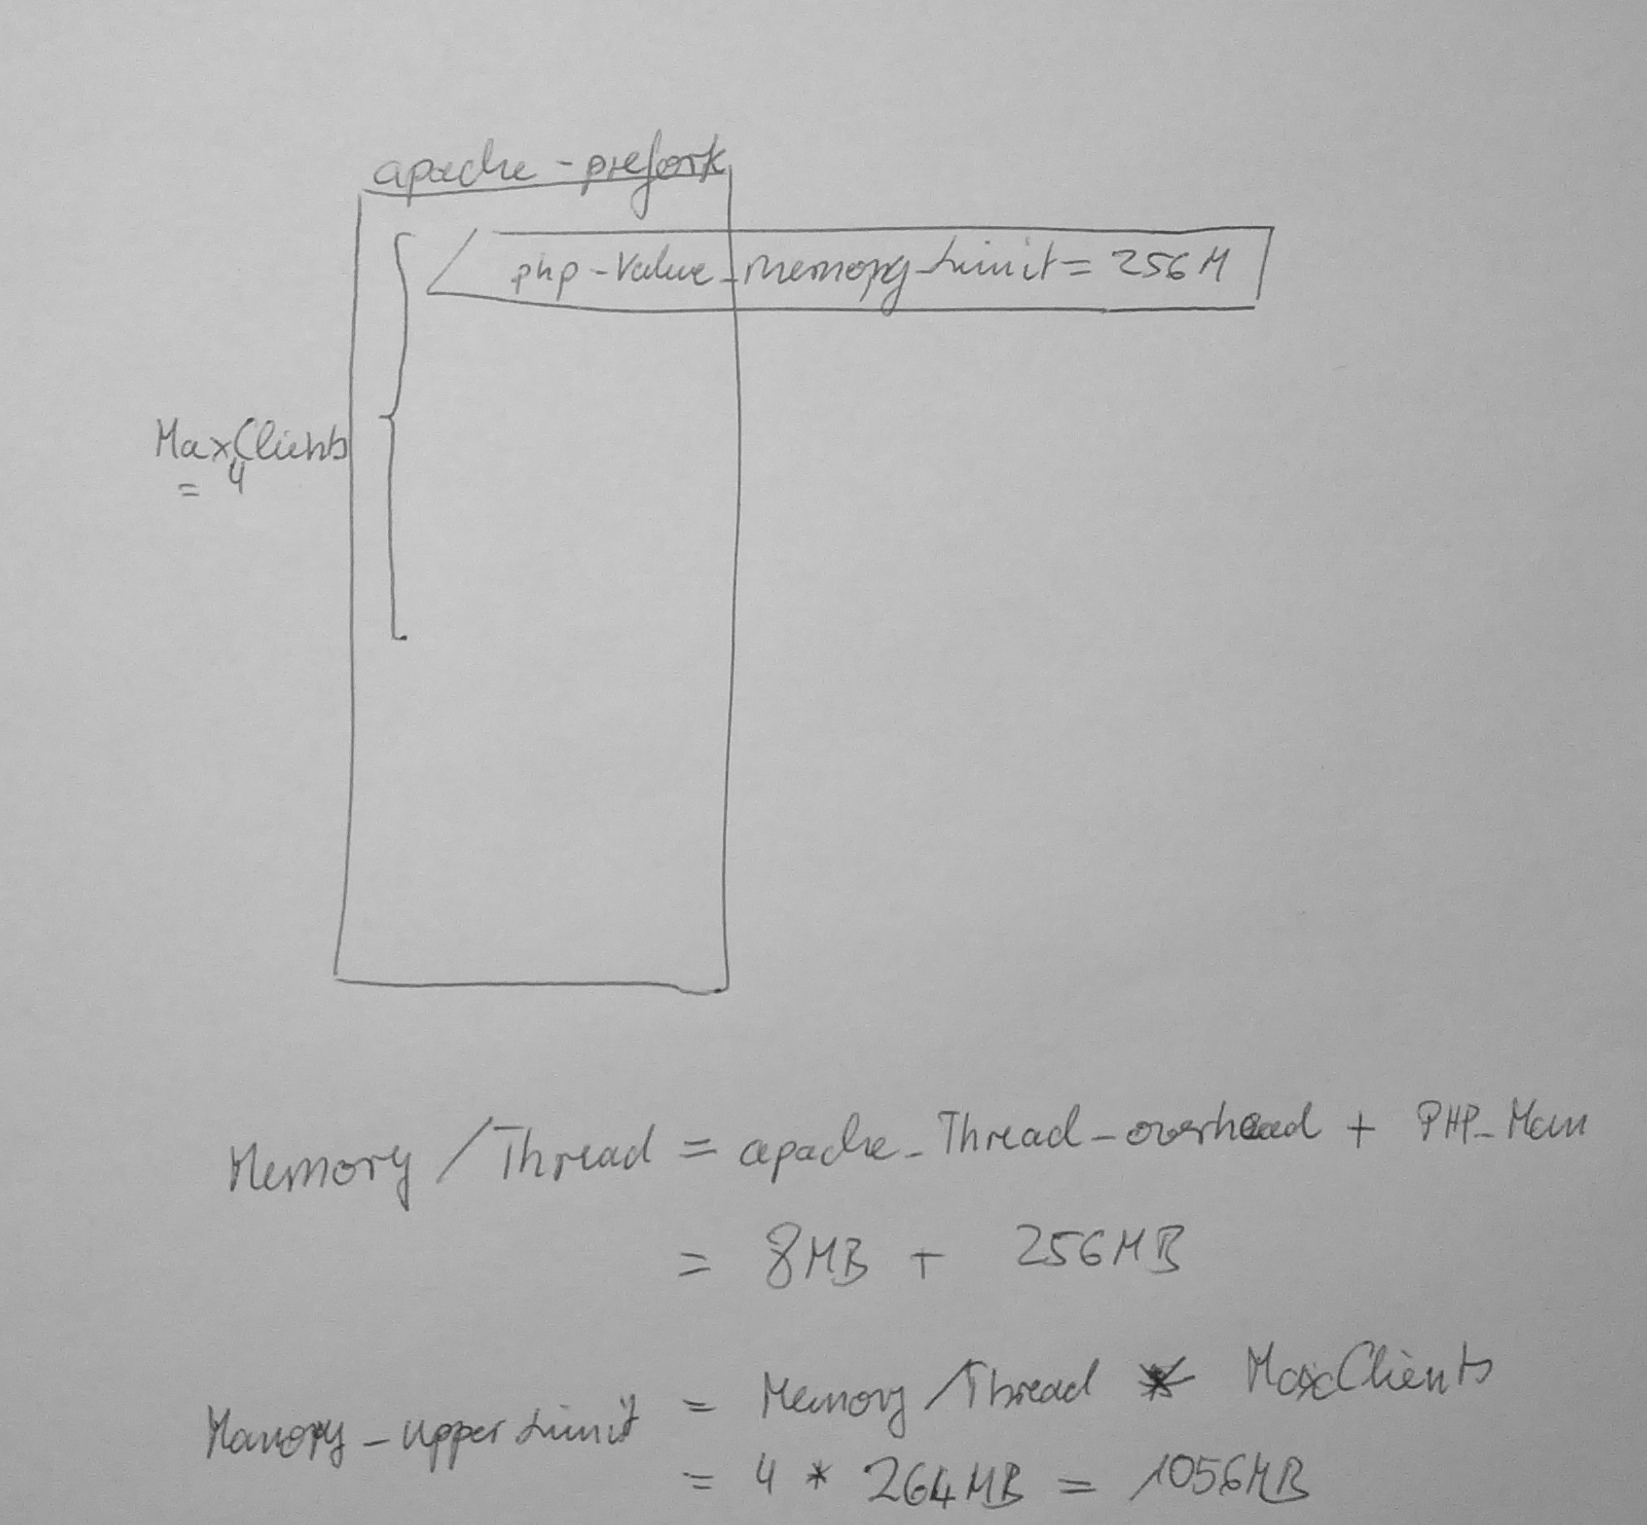 apache-prefork
php-Value_memory_Limit = 256M
MaxClients
= 4
Memory/Thread = apache_Thread-overhead + PHP_Mem
= 8MB + 256MB
Memory_upper Limit = Memory/Thread * MaxClients
= 4 * 264MB = 1056MB